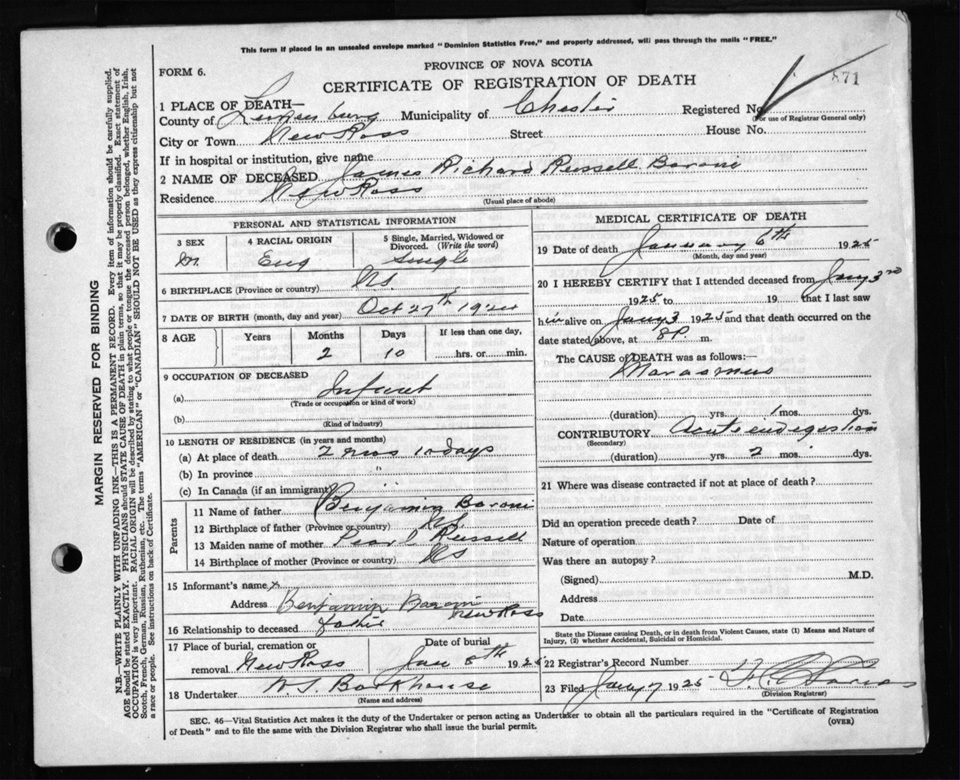 This form if placed in an unsealed envelope marked "Dominion Statistics Free," and properly addressed, will pass through the mails "FREE."
PROVINCE OF NOVA SCOTIA
FORM 6.
CERTIFICATE OF REGISTRATION OF DEATH
871
1 PLACE OF DEATH—
County of Lunenburg Municipality of Chester Registered No.
(For use of Registrar General only)
City or Town New Ross Street House No.
If in hospital or institution, give name
2 NAME OF DECEASED James Richard Russell
Residence New Ross
(Usual place of abode)
PERSONAL AND STATISTICAL INFORMATION
3 SEX 4 RACIAL ORIGIN 5 Single, Married, Widowed or Divorced. (Write the word)
M. Eng Single
6 BIRTHPLACE (Province or country) NS
7 DATE OF BIRTH (month, day and year) Oct 27th 1924
8 AGE Years Months Days If less than one day,
2 10 ......hrs. or......min.
9 OCCUPATION OF DECEASED
(a) Infant
(Trade or occupation or kind of work)
(b)
(Kind of industry)
10 LENGTH OF RESIDENCE (in years and months)
(a) At place of death 2 mos 10 days
(b) In province "
(c) In Canada (if an immigrant)
Parents
11 Name of father Benjamin
12 Birthplace of father (Province or country) NS
13 Maiden name of mother Pearl Russell
14 Birthplace of mother (Province or country) NS
15 Informant's name x
Address Benjamin New Ross
16 Relationship to deceased father
17 Place of burial, cremation or removal New Ross
Date of burial Jan 8th 1925
18 Undertaker Barkhouse
(Name and address)
MEDICAL CERTIFICATE OF DEATH
19 Date of death January 6th 1925
(Month, day and year)
20 I HEREBY CERTIFY that I attended deceased from Jany 3rd
1925 to 19 that I last saw
h im alive on Jany 3 1925 and that death occurred on the
date stated above, at 8 P m.
The CAUSE of DEATH was as follows:—
Marasmus
(duration) yrs. 1 mos. dys.
CONTRIBUTORY Acute indigestion
(Secondary)
(duration) yrs. 2 mos. dys.
21 Where was disease contracted if not at place of death?
Did an operation precede death? Date of
Nature of operation
Was there an autopsy?
(Signed) M.D.
Address
Date
State the Disease causing Death, or in death from Violent Causes, state (1) Means and Nature of
Injury, (2) whether Accidental, Suicidal or Homicidal.
22 Registrar's Record Number
23 Filed Jany 7 1925
(Division Registrar)
SEC. 46—Vital Statistics Act makes it the duty of the Undertaker or person acting as Undertaker to obtain all the particulars required in the "Certificate of Registration
of Death" and to file the same with the Division Registrar who shall issue the burial permit.
(OVER)
MARGIN RESERVED FOR BINDING
N.B.—WRITE PLAINLY WITH UNFADING INK—THIS IS A PERMANENT RECORD. Every item of information should be carefully supplied.
AGE should be stated EXACTLY. PHYSICIANS should STATE CAUSE OF DEATH in plain terms, so that it may be properly classified. Exact statement of
OCCUPATION is very important. RACIAL ORIGIN will be described by stating to what people or tongue the deceased person belonged, whether English, Irish,
Scotch, French, German, Russian, Ruthenian, etc. The terms "AMERICAN" or "CANADIAN" SHOULD NOT BE USED as they express citizenship but not
a race or people. See instructions on back of Certificate.